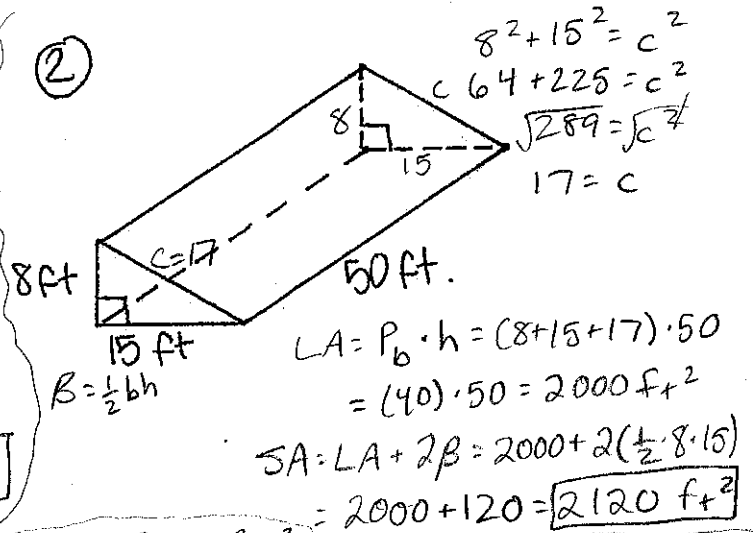 ②
8² + 15² = c²
c 64 + 225 = c²
√289 = √c²
17 = c
8
15
c=17
8ft
15 ft
50 ft.
B = ½bh
LA = P_b · h = (8+15+17) · 50
= (40) · 50 = 2000 ft²
SA = LA + 2B = 2000 + 2(½·8·15)
= 2000 + 120 = 2120 ft²